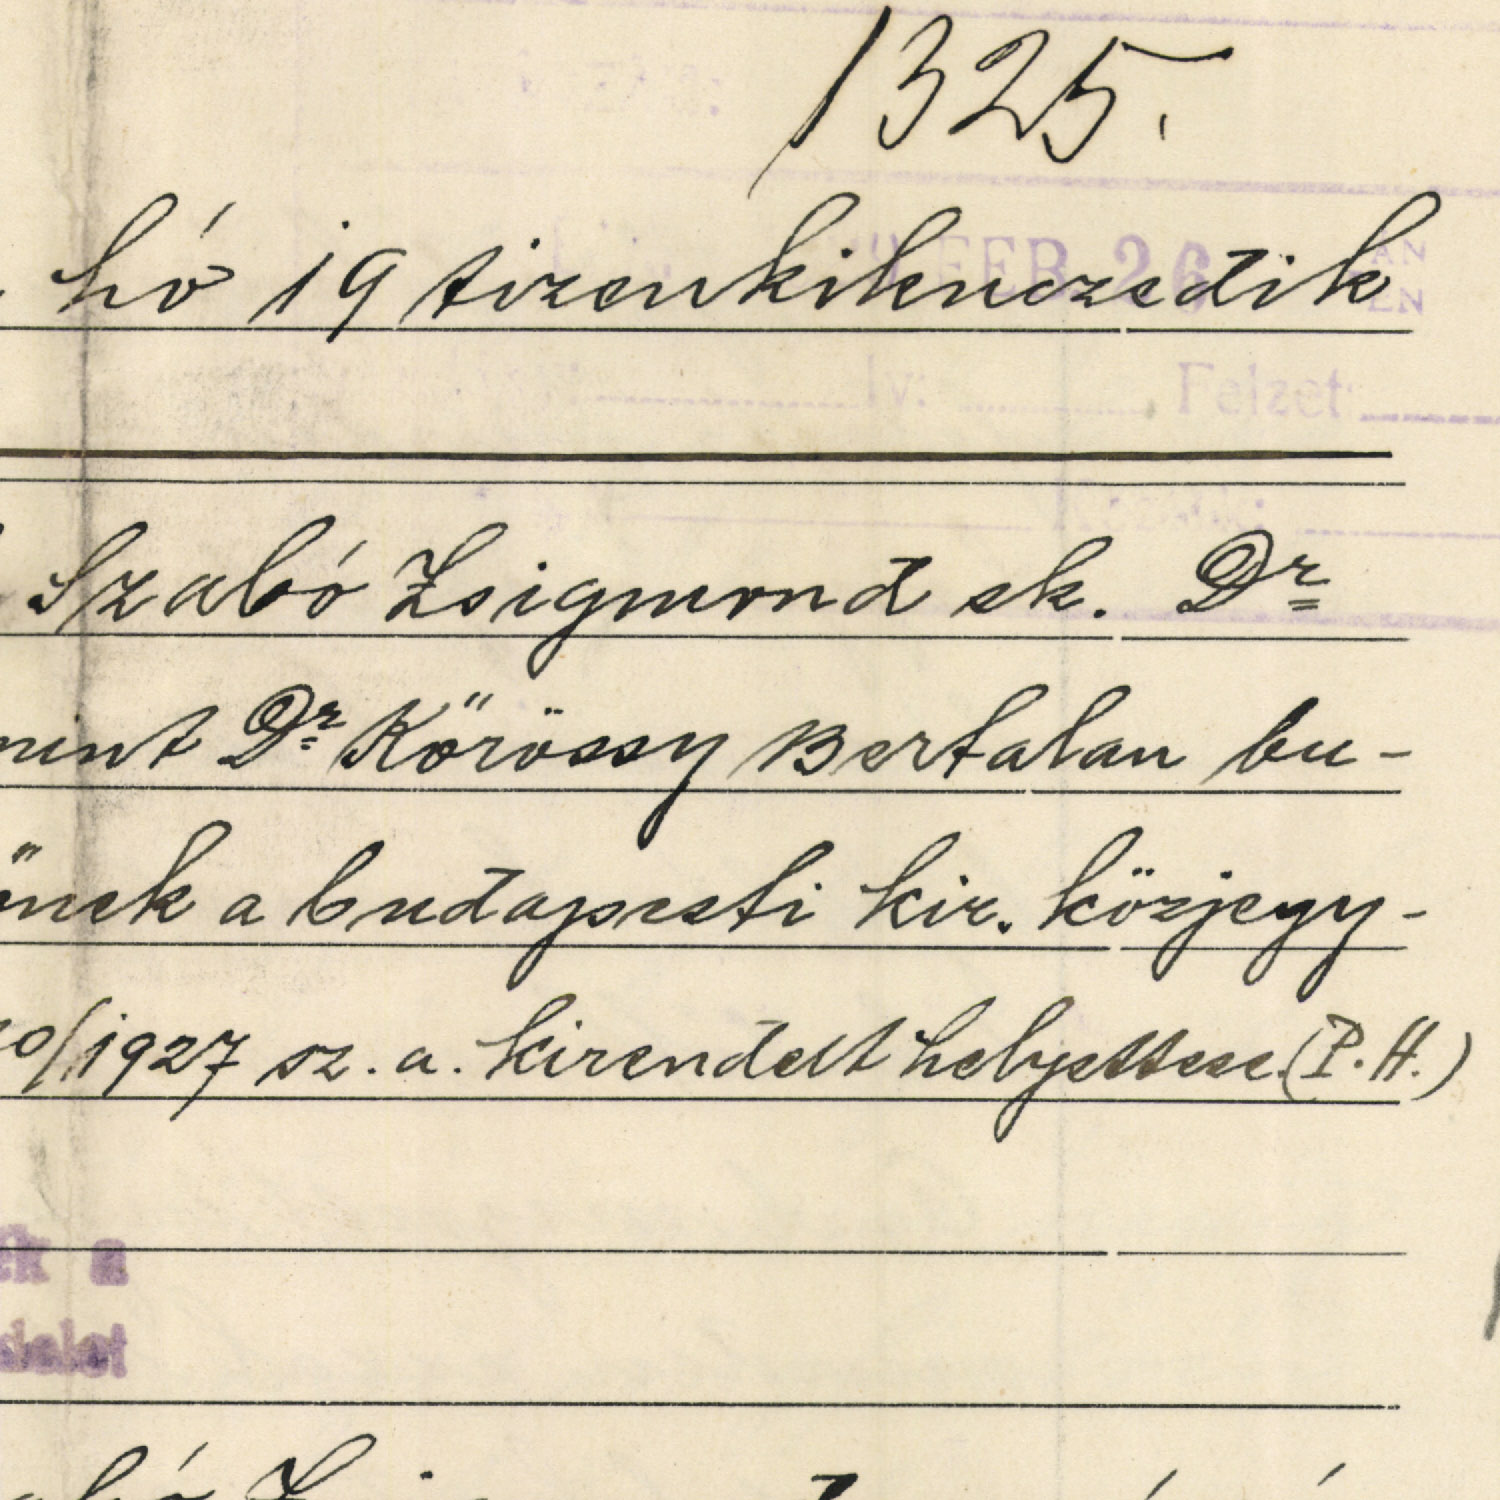 1325.
hó 19 tizenkilenczedik
FEB 26
AN
EN
lv: Felzet:
Szabó Zsigmond sk. Dr
mint Dr Kőrössy Bertalan bu-
őnek a budapesti kir. közjegy-
/1927 sz. a. kirendelt helyettese. (P.H.)
ek a
delet
abó